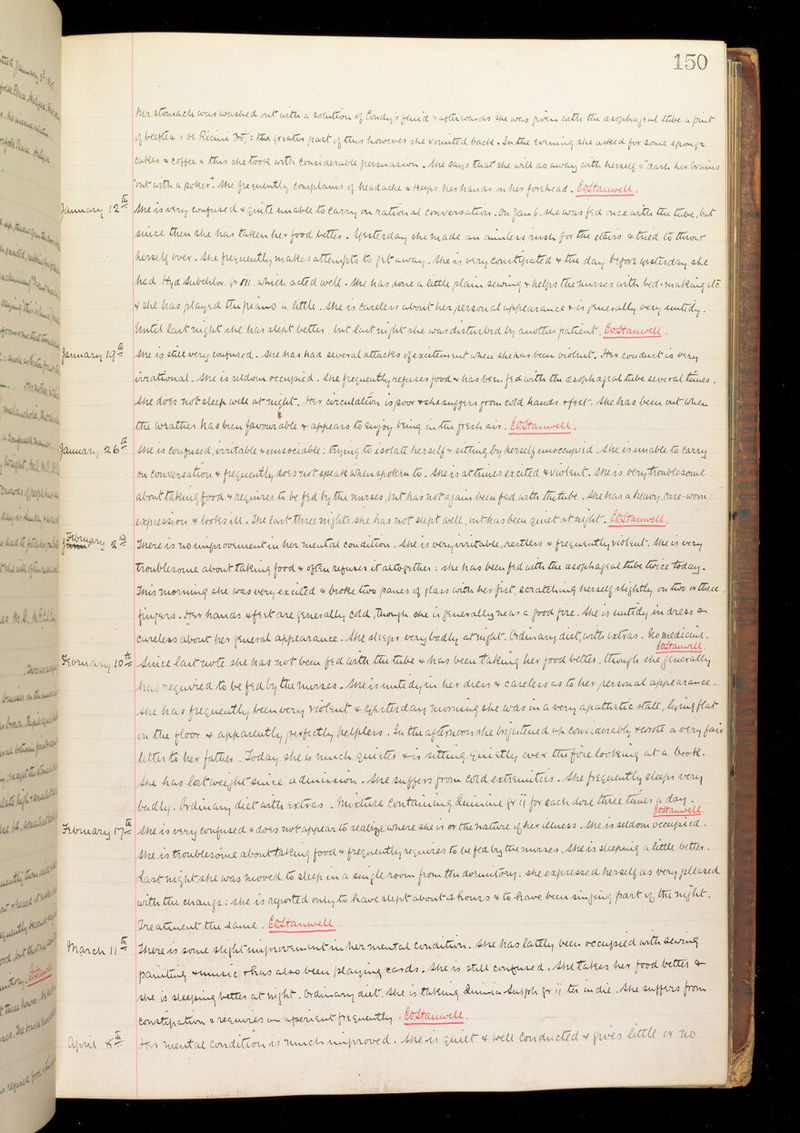 150
her stomach was washed out with a solution of Condy's fluid & afterwards she was given with the œsophageal tube a pint
of beeftea & ol Ricini: the greater part of this however she vomited back. In the evening she asked for some sponge
cakes & coffee & this she took with considerable persuasion. She says that she will do away with herself & "dash her brains
out with a poker". She frequently complains of headache & keeps her hands on her forehead. EGStanwell.
January 12th She is very confused & quite unable to carry on rational conversation. On Jan 6. she was fed once with the tube, but
since then she has taken her food better. Yesterday she made an aimless rush for the stairs & tried to throw
herself over. She frequently makes attempts to get away. She is very constipated & the day before yesterday she
had Hyd Subchlor gr III. which acted well. She has done a little plain sewing & helps the nurses with bed-making etc
& she has played the piano a little. She is careless about her personal appearance & is generally very untidy.
Until last night she has slept better, but last night she was disturbed by another patient. EGStanwell.
January 19th She is still very confused. She has had several attacks of excitement when she has been violent. Her conduct is very
irrational. She is seldom occupied. She frequently refuses food & has been fed with the œsophageal tube several times.
She does not sleep well at night. Her circulation is poor & she suffers from cold hands & feet. She has been out when
the weather has been favourable & appears to enjoy being in the fresh air. EGStanwell.
January 26th She is confused, irritable & unsociable: trying to isolate herself & sitting by herself unoccupied. She is unable to carry
on conversation & frequently does not speak when spoken to. She is at times excited & violent. She is very troublesome
about taking food & requires to be fed by the nurses, but has not again been fed with the tube. She has a heavy, care-worn
expression & looks ill. The last three nights she has not slept well, but has been quiet at night. EGStanwell.
February 2nd There is no improvement in her mental condition. She is very irritable, restless & frequently violent. She is very
troublesome about taking food & often refuses it altogether: she has been fed with the œsophageal tube twice today.
This morning she was very excited & broke two panes of glass with her fist, scratching herself slightly on two or three
fingers. Her hands & feet are generally cold, though she is generally near a good fire. She is untidy in dress &
careless about her general appearance. She sleeps very badly at night. Ordinary diet with extras. No medicine.
EGStanwell.
February 10th Since last note she has not been fed with the tube & has been taking her food better, though she generally
has required to be fed by the nurses. She is untidy in her dress & careless as to her personal appearance.
She has frequently been very violent & yesterday morning she was in a very apathetic state, lying flat
on the floor & apparently perfectly helpless. In the afternoon she brightened up considerably & wrote a very fair
letter to her father. Today she is much quieter & is sitting quietly over the fire looking at a book.
She has lost weight since admission. She suffers from cold extremities. She frequently sleeps very
badly. Ordinary diet with extras. Mixture containing Quinine gr ij for each dose three times a day.
EGStanwell.
February 17th She is very confused & does not appear to realize where she is or the nature of her illness. She is seldom occupied.
She is troublesome about taking food & frequently requires to be fed by the nurses. She is sleeping a little better.
Last night she was moved to sleep in a single room from the dormitory: she expressed herself as very pleased
with the change: she is reported only to have slept about 2 hours & to have been singing part of the night.
Treatment the same. EGStanwell.
March 11th There is some slight improvement in her mental condition. She has lately been occupied with sewing
painting & music & has also been playing cards. She is still confused. She takes her food better &
she is sleeping better at night. Ordinary diet. She is taking Quinin Sulph gr ij ter in die. She suffers from
constipation & requires an aperient frequently. EGStanwell.
April 6th Her mental condition is much improved. She is quiet & well conducted & gives little or no